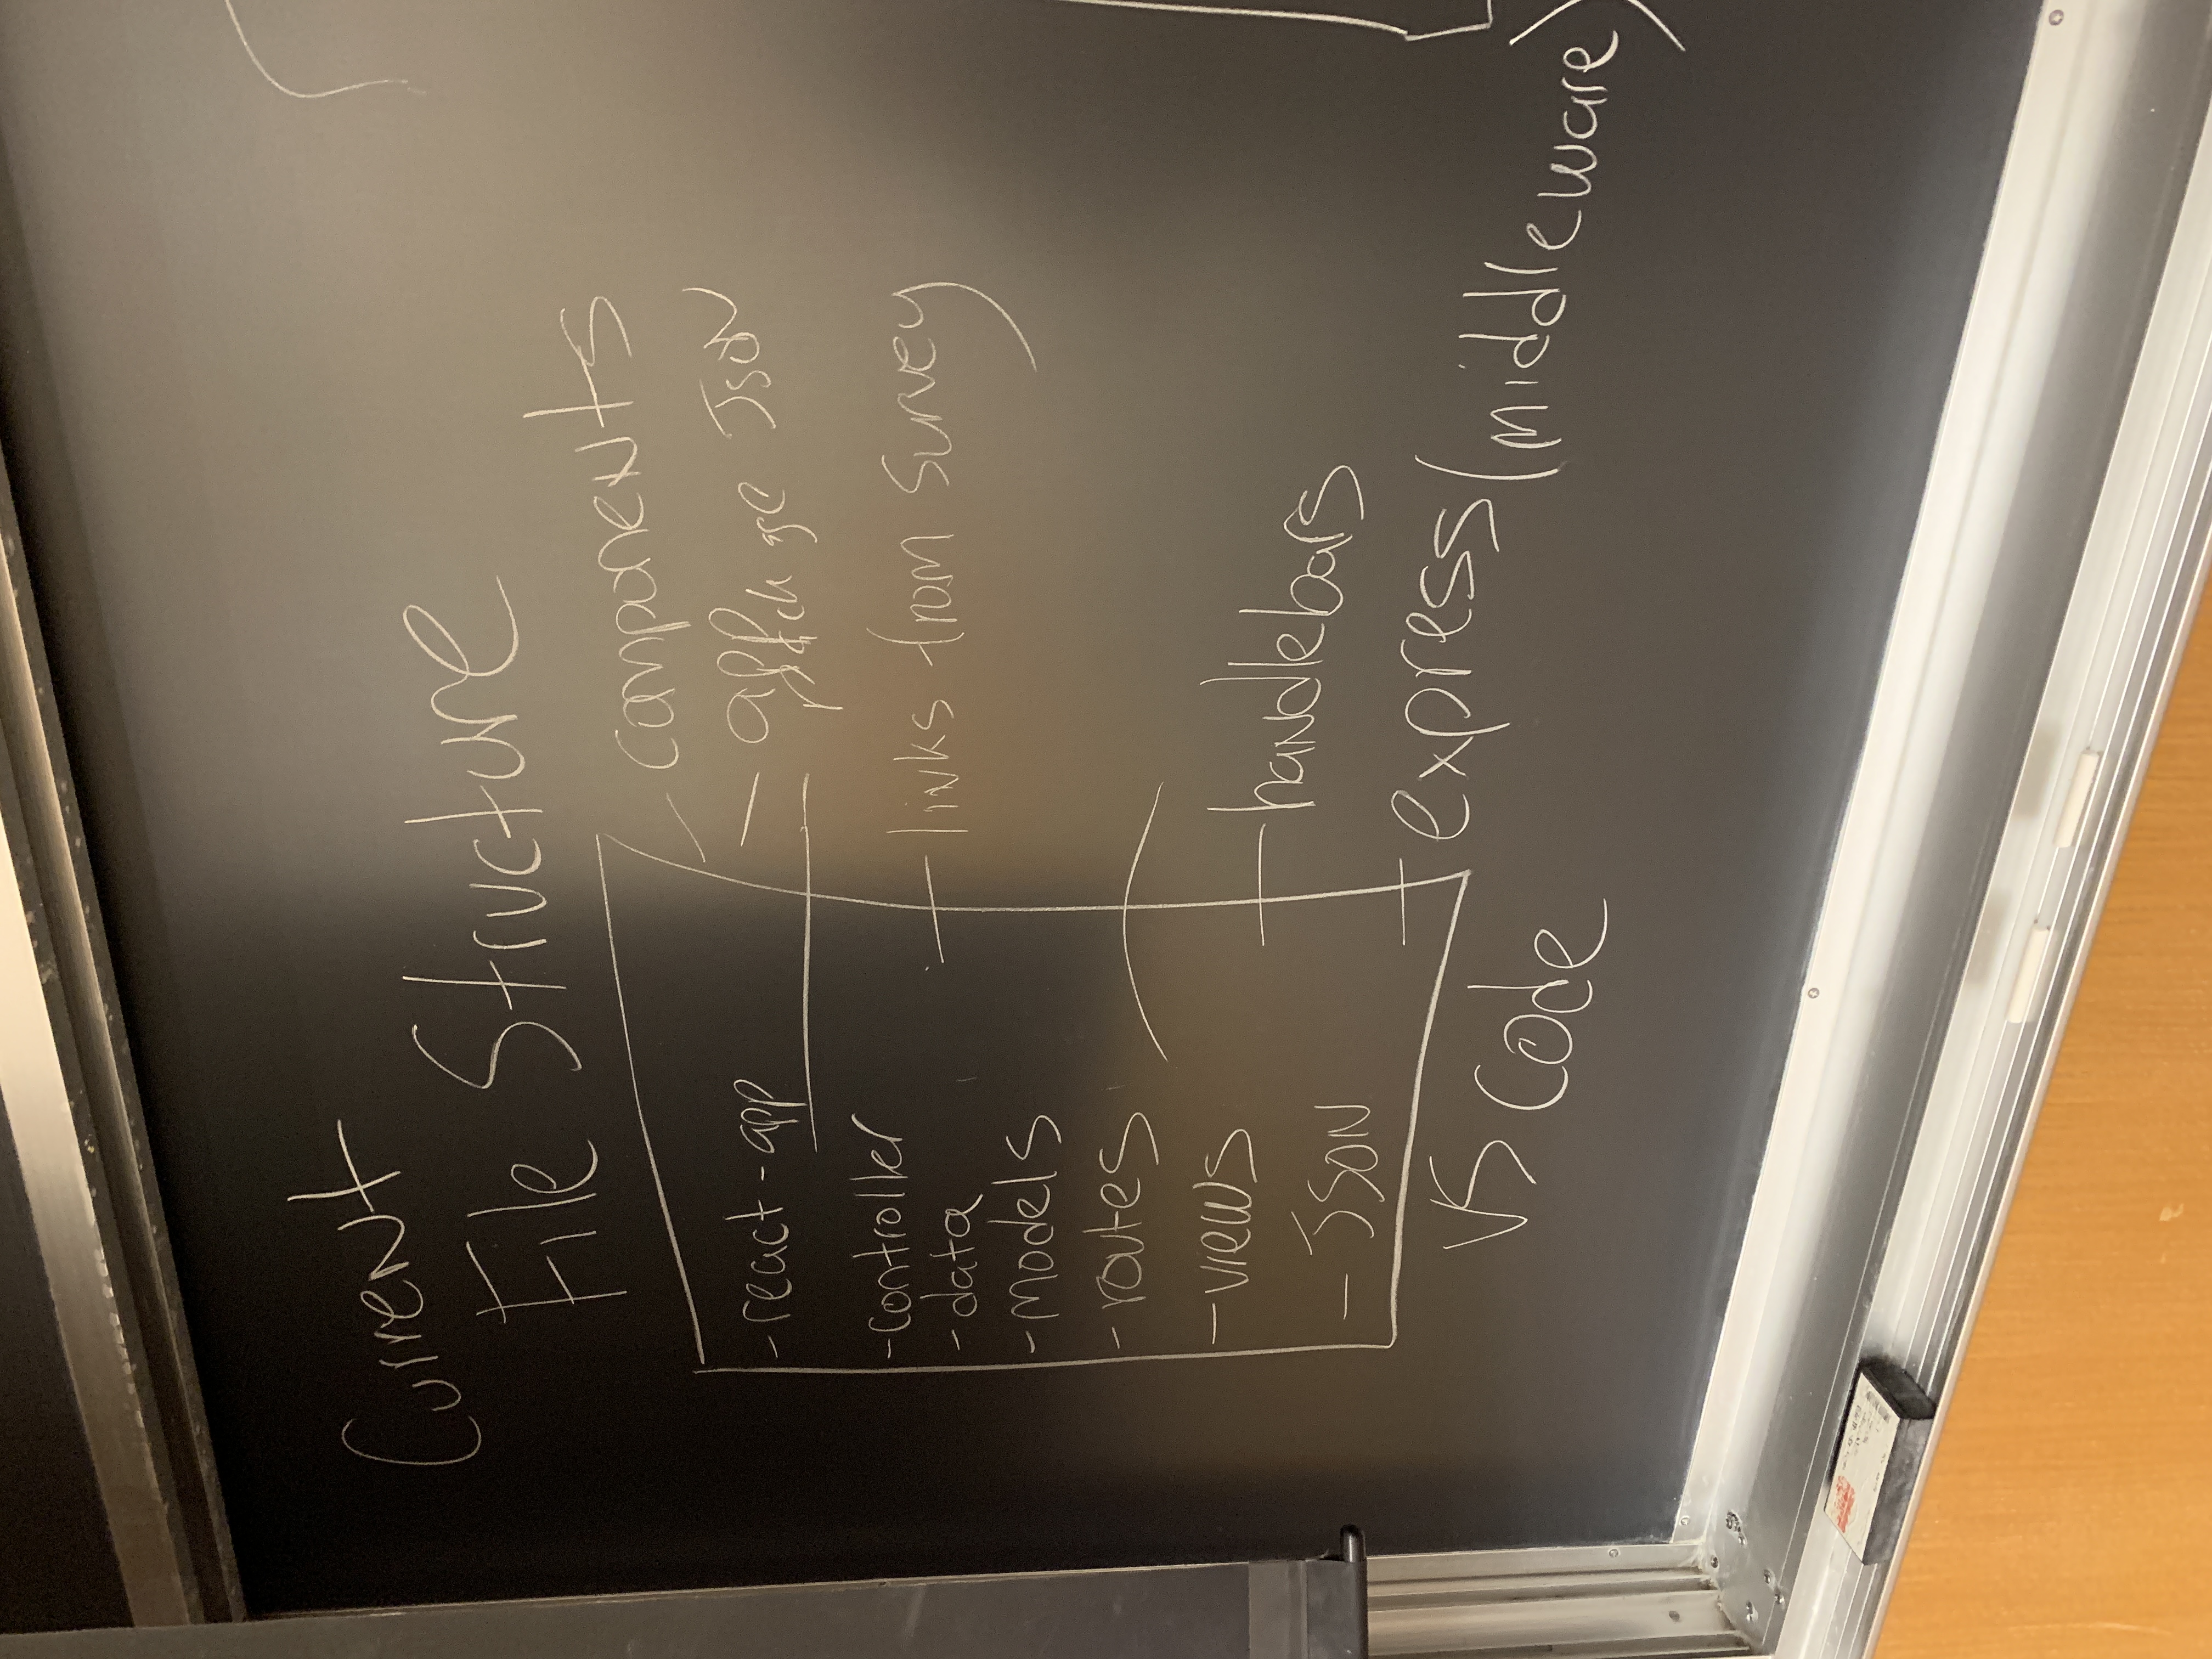 Current
File Structure
- react-app
- controller
- data
- models
- routes
- views
- JSON
VS Code
components
app
package JSON
links from survey
handlebars
express (middleware)